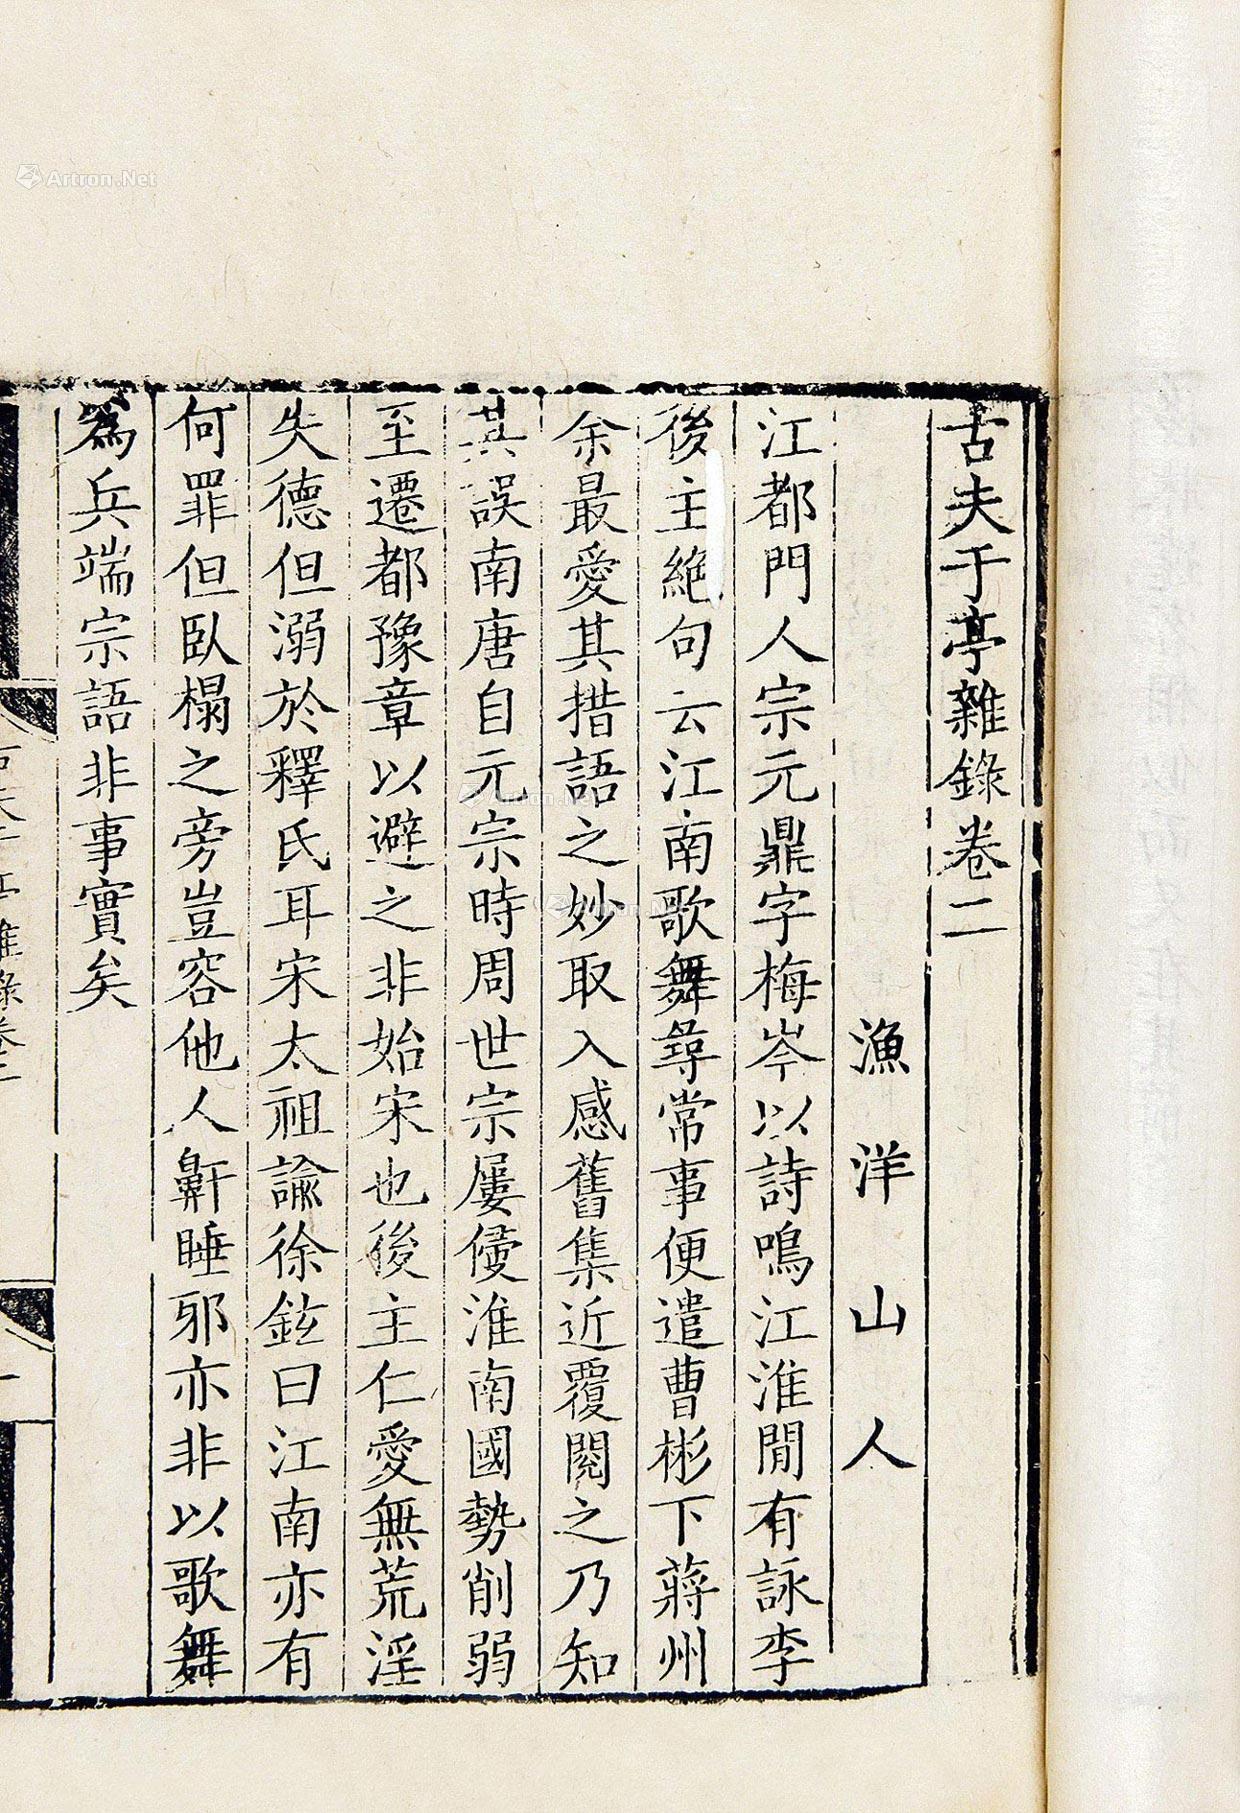 古夫于亭雜錄卷二
漁洋山人
江都門人宗元鼎字梅岑以詩鳴江淮閒有詠李
後主絕句云江南歌舞尋常事便遣曹彬下蔣州
余最愛其措語之妙取入感舊集近覆閱之乃知
其誤南唐自元宗時周世宗屢侵淮南國勢削弱
至遷都豫章以避之非始宋也後主仁愛無荒淫
失德但溺於釋氏耳宋太祖諭徐鉉曰江南亦有
何罪但臥榻之旁豈容他人鼾睡邪亦非以歌舞
為兵端宗語非事實矣
Artron.Net
Artron.Net
Artron.Net